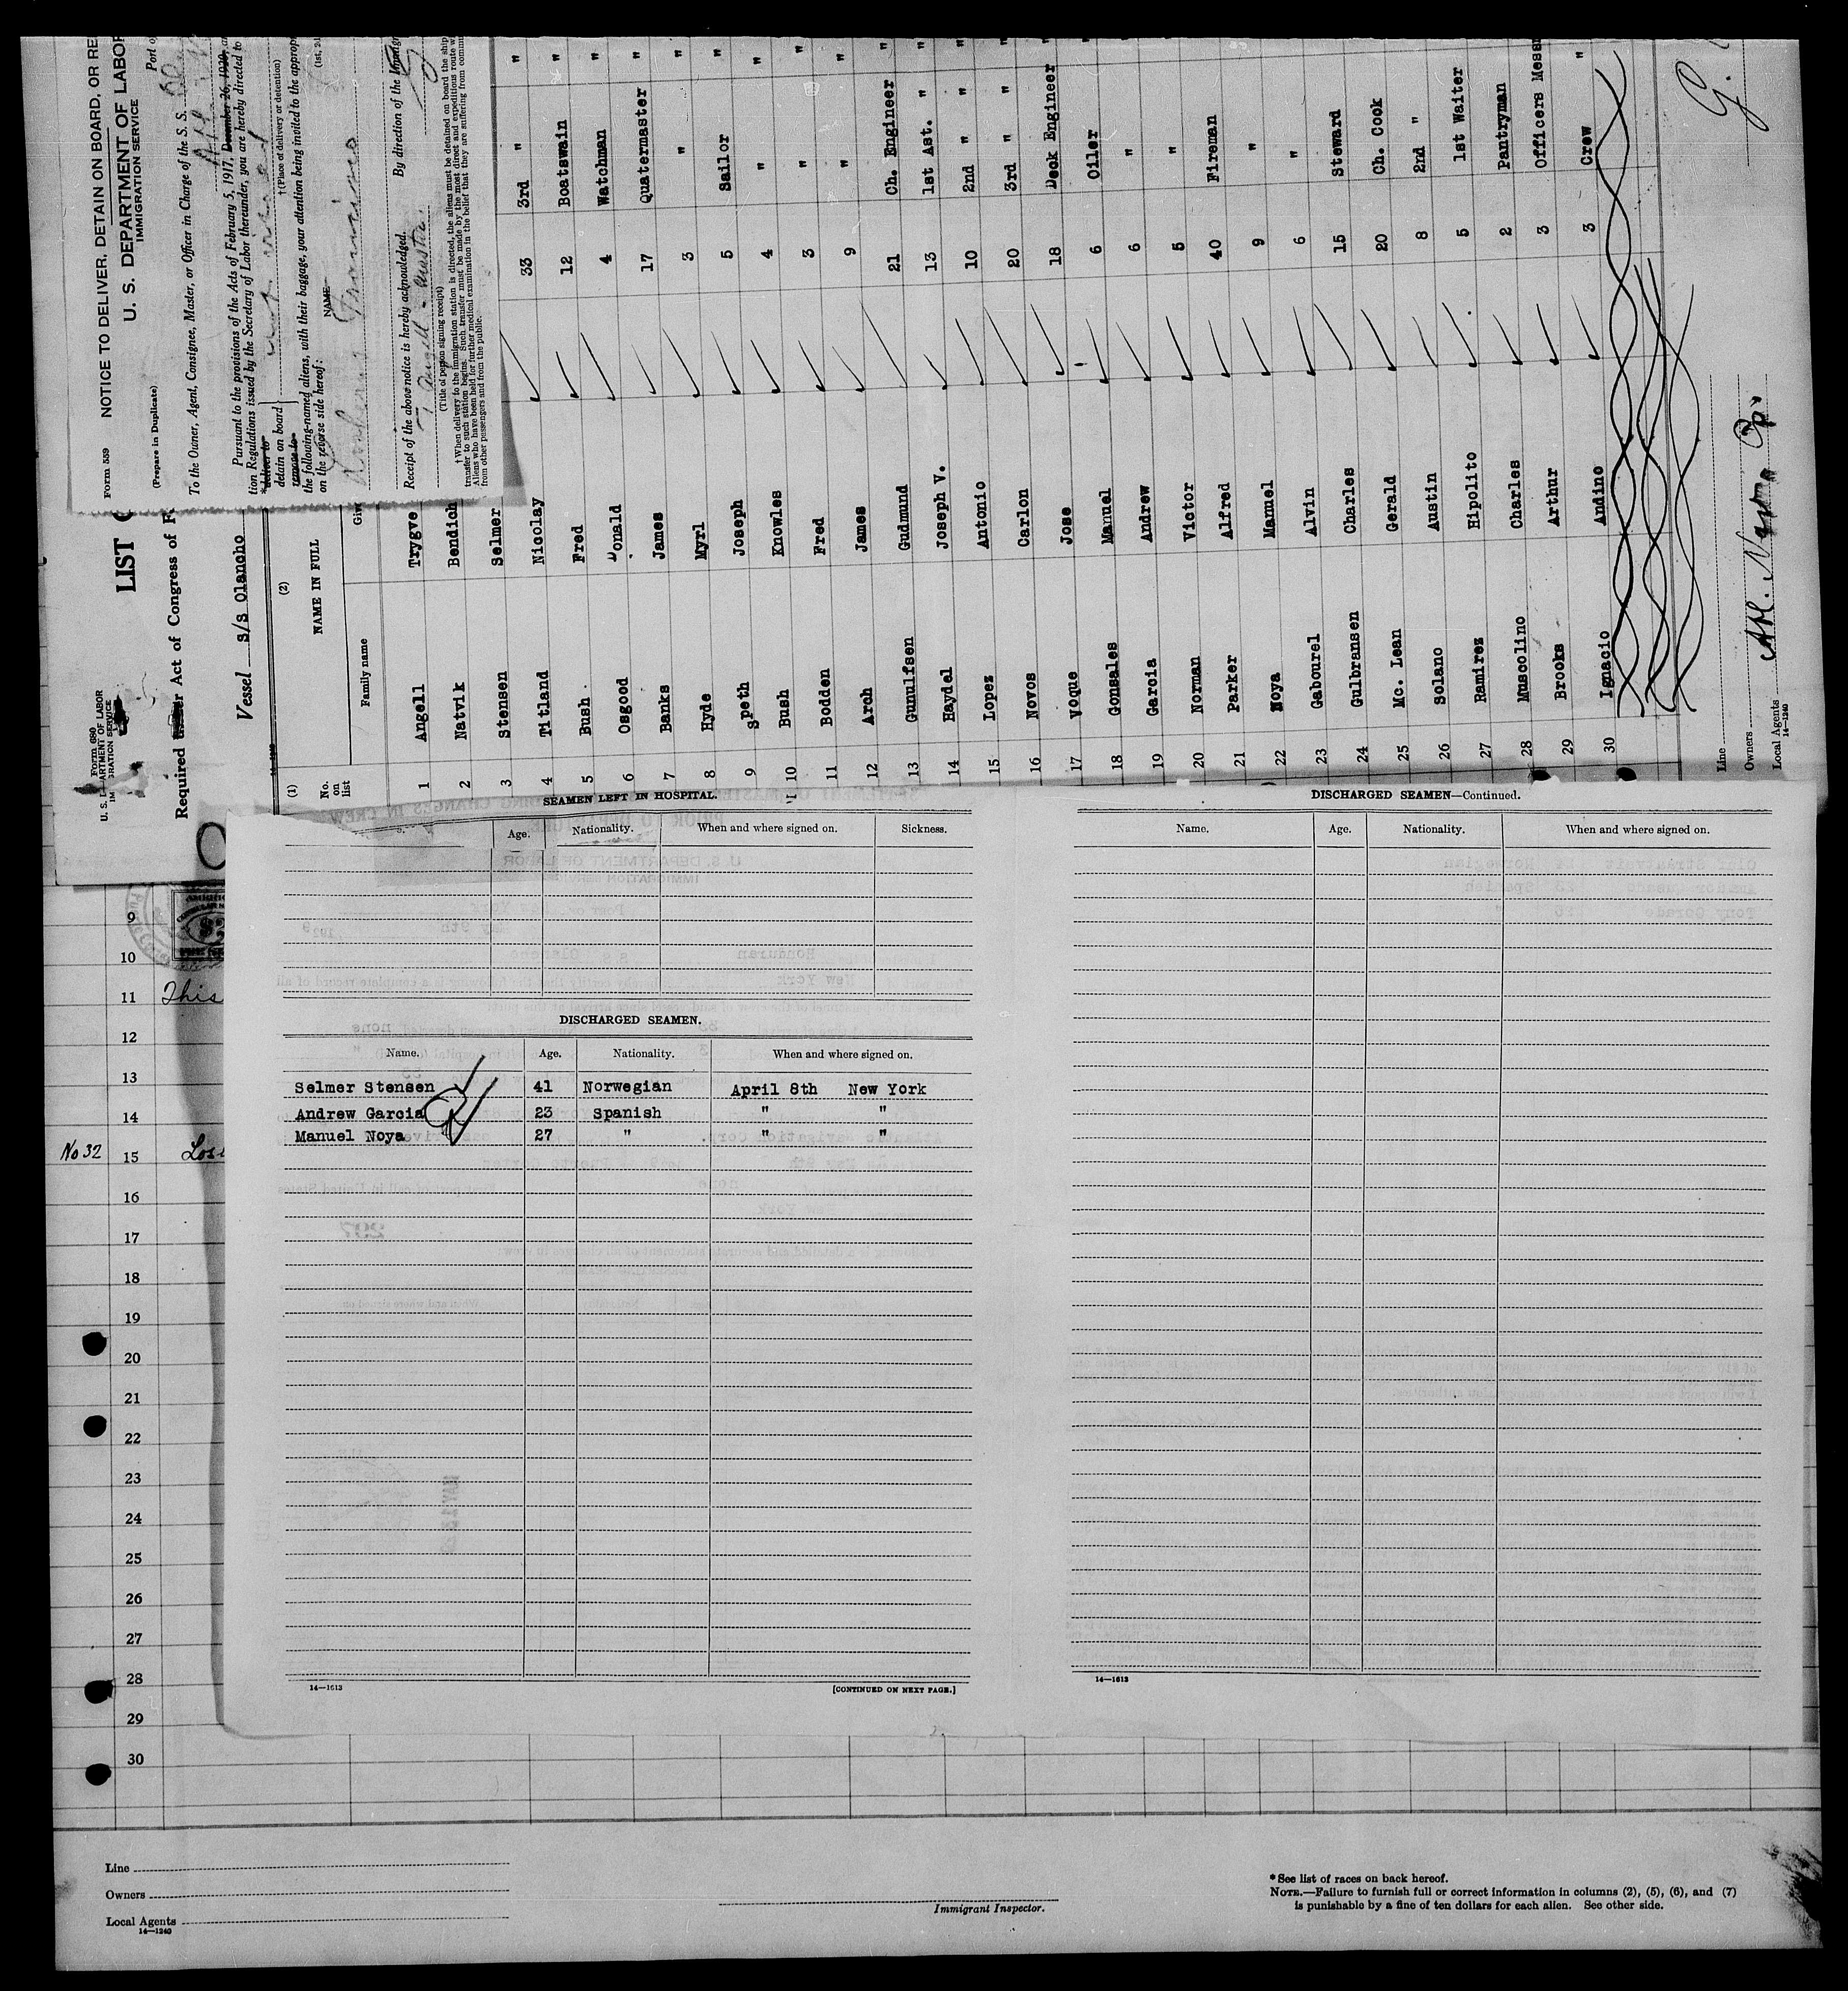 Form 559
NOTICE TO DELIVER, DETAIN ON BOARD, OR RE
U. S. DEPARTMENT OF LABOR
IMMIGRATION SERVICE
(Prepare in Duplicate)
Port of
To the Owner, Agent, Consignee, Master, or Officer in Charge of the S. S.
Pursuant to the provisions of the Acts of February 5, 1917, December 26, 1920, an
tion Regulations issued by the Secretary of Labor thereunder, you are hereby directed to
*deliver to
detain on board
remove to
†(Place of delivery or detention)
the following-named aliens, with their baggage, your attention being invited to the approp
on the reverse side hereof:
NAME
(1st, 2d
Receipt of the above notice is hereby acknowledged.
By direction of the Immigr
T Angell - Master
(Title of person signing receipt)
† When delivery to the immigration station is directed, the aliens must be detained on board the ship
transfer to such station begins. Such transfer must be made by the most direct and expeditious route w
Aliens who have been held for further medical examination in the belief that they are suffering from commu
from other passengers and from the public.
Form 680
U. S. DEPARTMENT OF LABOR
IMMIGRATION SERVICE
LIST
Required under Act of Congress of F
Vessel s/s Olancho
(1) (2)
No. on list
NAME IN FULL
Family name Giv
1 Angell Trygve
2 Natvik Bendich
3 Stensen Selmer
4 Titland Nicolay 33 3rd " "
5 Bush Fred 12 Boatswain "
6 Osgood Donald 4 Watchman "
7 Banks James 17 Quatermaster "
8 Hyde Myrl 3 " "
9 Speth Joseph 5 Sailor "
10 Bush Knowles 4 " "
11 Bodden Fred 3 " "
12 Arch James 9 " "
13 Gunulfsen Gudmund 21 Ch. Engineer "
14 Haydel Joseph V. 13 1st Ast. " "
15 Lopez Antonio 10 2nd " " "
16 Novos Carlon 20 3rd " " "
17 Voque Jose 18 Deck Engineer "
18 Gonsales Manuel 6 Oiler
19 Garcia Andrew 6 "
20 Norman Victor 5 "
21 Parker Alfred 40 Fireman
22 Noya Manuel 9 "
23 Gabourel Alvin 6 "
24 Gulbransen Charles 15 Steward
25 Mc. Lean Gerald 20 Ch. Cook
26 Solano Austin 8 2nd "
27 Ramirez Hipolito 5 1st Waiter
28 Muscolino Charles 2 Pantryman
29 Brooks Arthur 3 Officers Mess
30 Ignacio Andino 3 Crew "
Line
Owners
Local Agents
14—1240
SEAMEN LEFT IN HOSPITAL.
Age. Nationality. When and where signed on. Sickness.
DISCHARGED SEAMEN.
Name. Age. Nationality. When and where signed on.
Selmer Stensen 41 Norwegian April 8th New York
Andrew Garcia 23 Spanish " "
Manuel Noya 27 " " "
14—1613
[CONTINUED ON NEXT PAGE.]
DISCHARGED SEAMEN—Continued.
Name. Age. Nationality. When and where signed on.
14—1613
2.
9
10
11 This
12
13
14
No 32 15
16
17
18
19
20
21
22
23
24
25
26
27
28
29
30
Line
Owners
Local Agents
14—1240
Immigrant Inspector.
* See list of races on back hereof.
NOTE.—Failure to furnish full or correct information in columns (2), (5), (6), and (7)
is punishable by a fine of ten dollars for each alien. See other side.